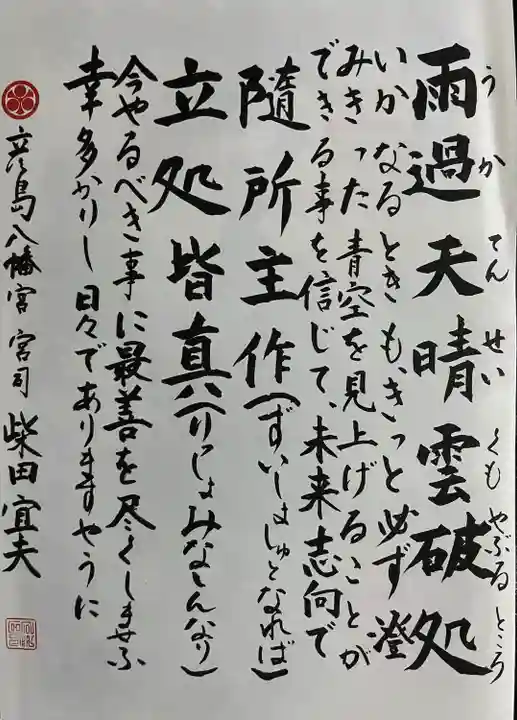 雨過天晴雲破処
うかてんせいくもやぶるところ
いかなるときも、きっと必ず澄
みきった青空を見上げることが
できる事を信じて、未来志向で
随所主作(ずいしょしゅとなれば)
立処皆真(りっしょみなしんなり)
今やるべき事に最善を尽くしませふ
幸多かりし日々でありますやうに
彦島八幡宮 宮司 柴田宜夫